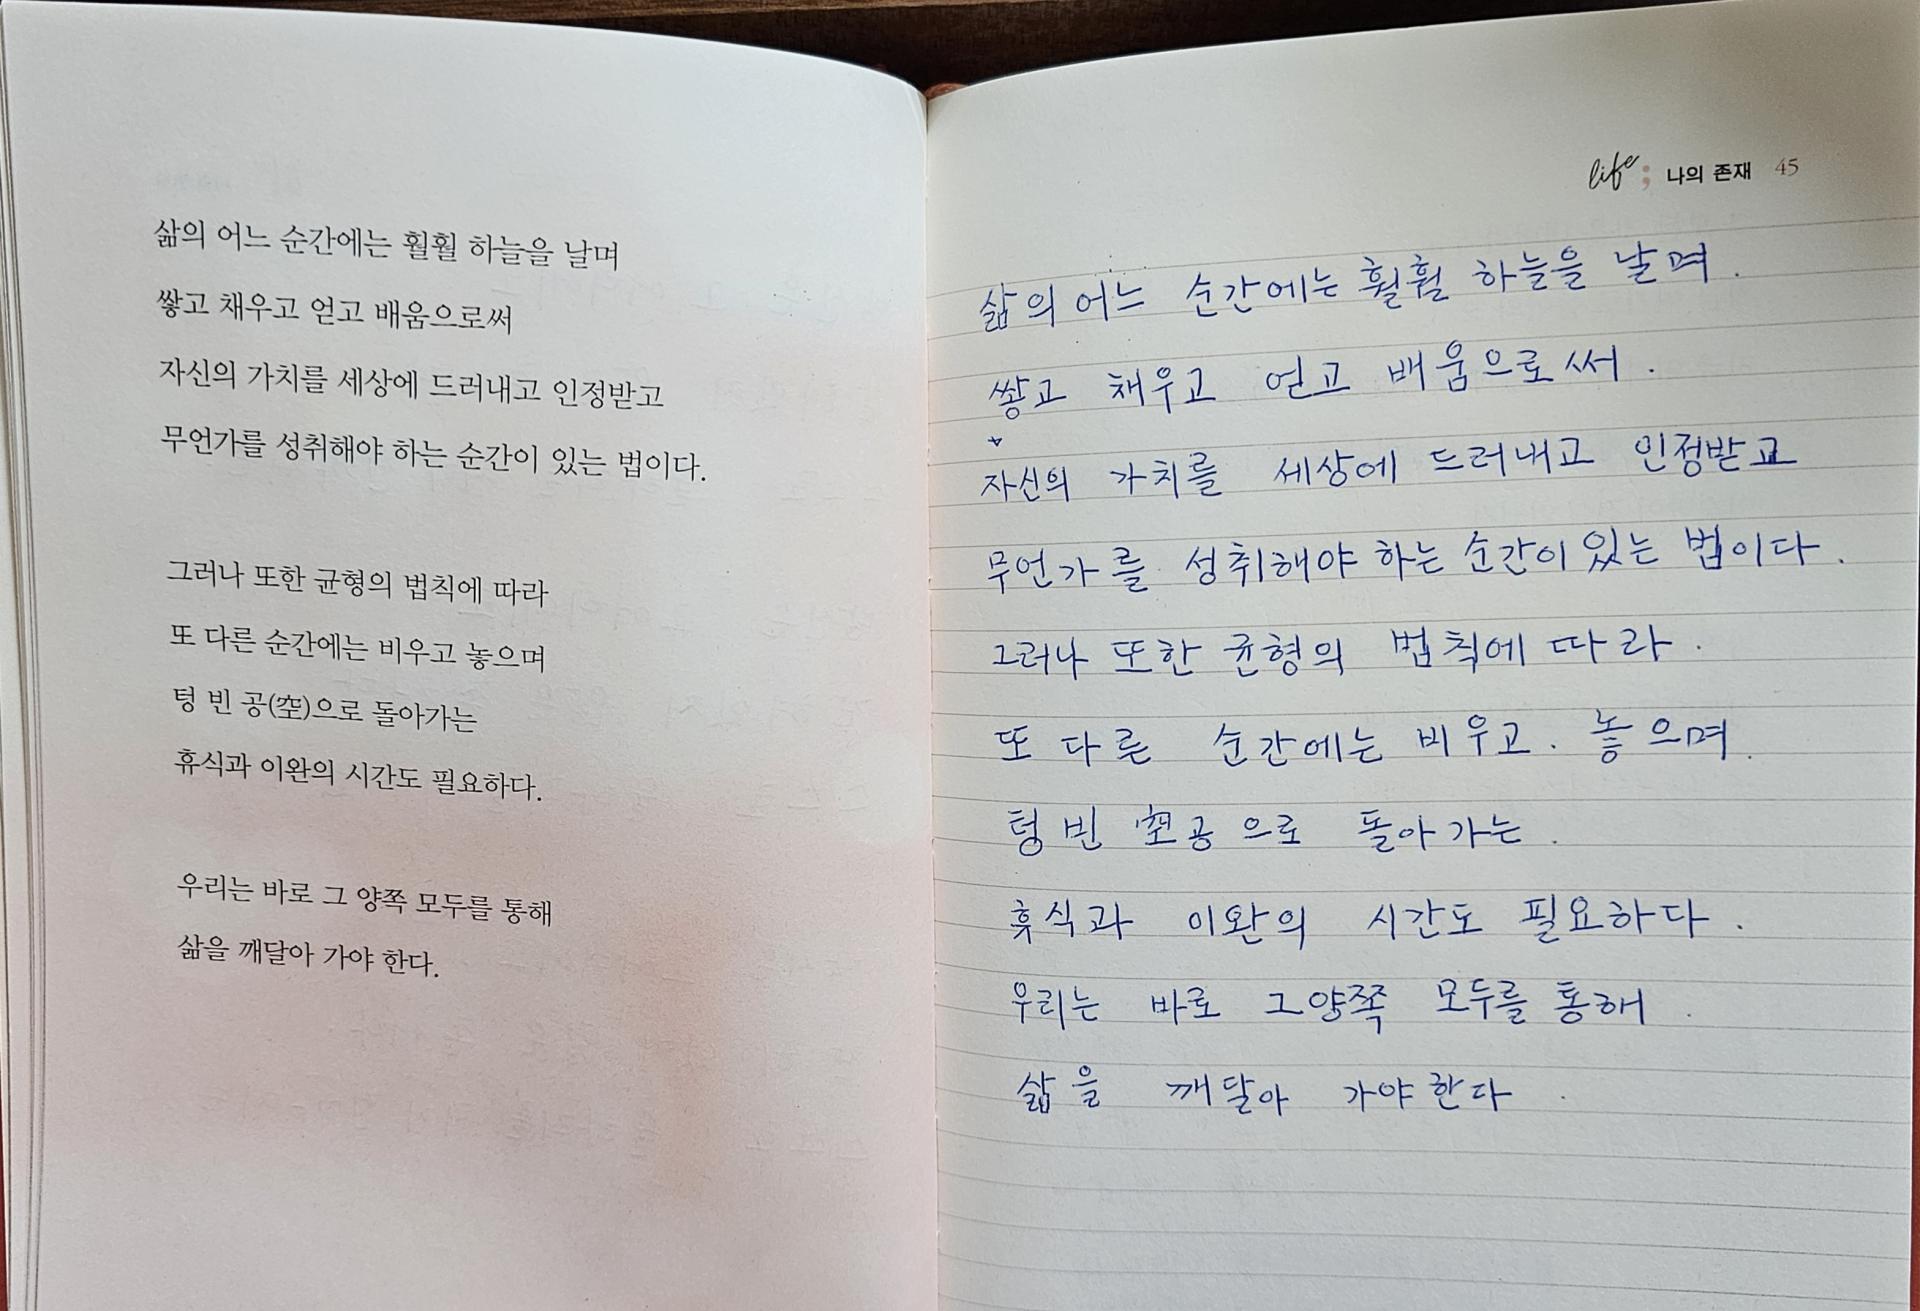 삶의 어느 순간에는 훨훨 하늘을 날며
쌓고 채우고 얻고 배움으로써
자신의 가치를 세상에 드러내고 인정받고
무언가를 성취해야 하는 순간이 있는 법이다.
그러나 또한 균형의 법칙에 따라
또 다른 순간에는 비우고 놓으며
텅 빈 공(空)으로 돌아가는
휴식과 이완의 시간도 필요하다.
우리는 바로 그 양쪽 모두를 통해
삶을 깨달아 가야 한다.
life; 나의 존재 45
삶의 어느 순간에는 훨훨 하늘을 날며.
쌓고 채우고 얻고 배움으로써.
자신의 가치를 세상에 드러내고 인정받고
무언가를 성취해야 하는 순간이 있는 법이다.
그러나 또한 균형의 법칙에 따라.
또 다른 순간에는 비우고. 놓으며.
텅 빈 空공으로 돌아가는.
휴식과 이완의 시간도 필요하다.
우리는 바로 그 양쪽 모두를 통해.
삶을 깨달아 가야 한다.